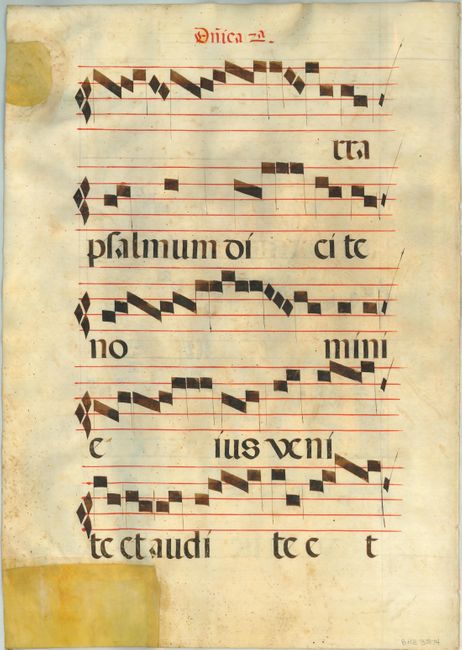 Dñica 2a.
rra
psalmum di ci te
no mini
e ius veni
te et audi te e t